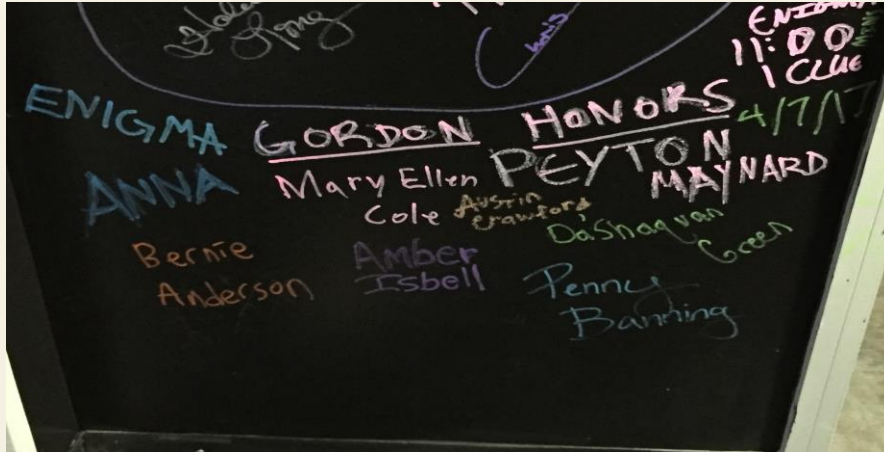 Long
Chris
ENIGMA
11:00
1 CLUE
4/7/17
ENIGMA
GORDON HONORS
ANNA
Mary Ellen
Cole
PEYTON
MAYNARD
Austin
Crawford
Da'Shaquan
Green
Bernie
Anderson
Amber
Isbell
Penny
Banning